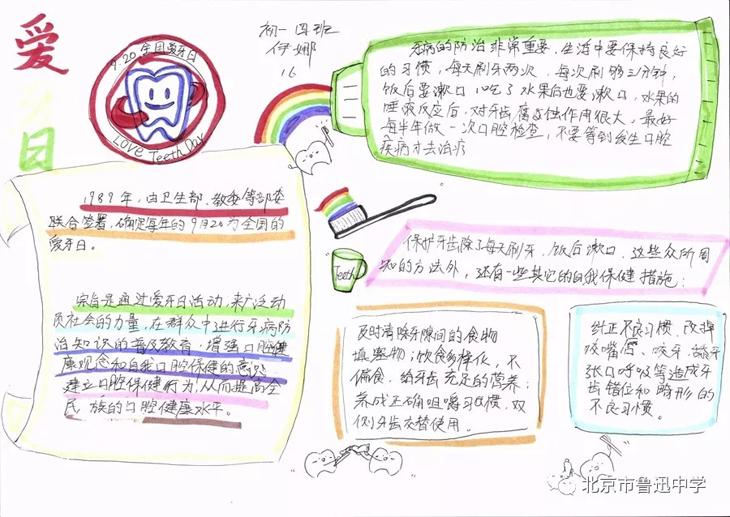 爱
牙
日
9.20 全国爱牙日
LOVE Teeth Day
初一四班
伊娜
16
牙病的防治非常重要,生活中要保持良好
的习惯,每天刷牙两次,每次刷够三分钟,
饭后要漱口,吃了水果后也要漱口,水果的
酸反应后,对牙齿腐蚀作用很大,最好
每半年做一次口腔检查,不要等到发生口腔
疾病才去治疗
1989年,由卫生部、教委等部委
联合签署,确定每年的9月20为全国的
爱牙日。
宗旨是通过爱牙日活动,来广泛动
员社会的力量,在群众中进行牙病防
治知识的普及教育,增强口腔健
康观念和自我口腔保健的意识,
建立口腔保健行为,从而提高全
民族的口腔健康水平。
Teeth
保护牙齿除了每天刷牙、饭后漱口,这些众所周
知的方法外,还有一些其它的自我保健措施:
及时清除牙隙间的食物
填塞物;饮食多样化,不
偏食,给牙齿充足的营养;
养成正确咀嚼习惯,双
侧牙齿交替使用。
纠正不良习惯,改掉
咬嘴唇、咬牙、舔牙
张口呼吸等造成牙
齿错位和畸形的
不良习惯。
北京市鲁迅中学